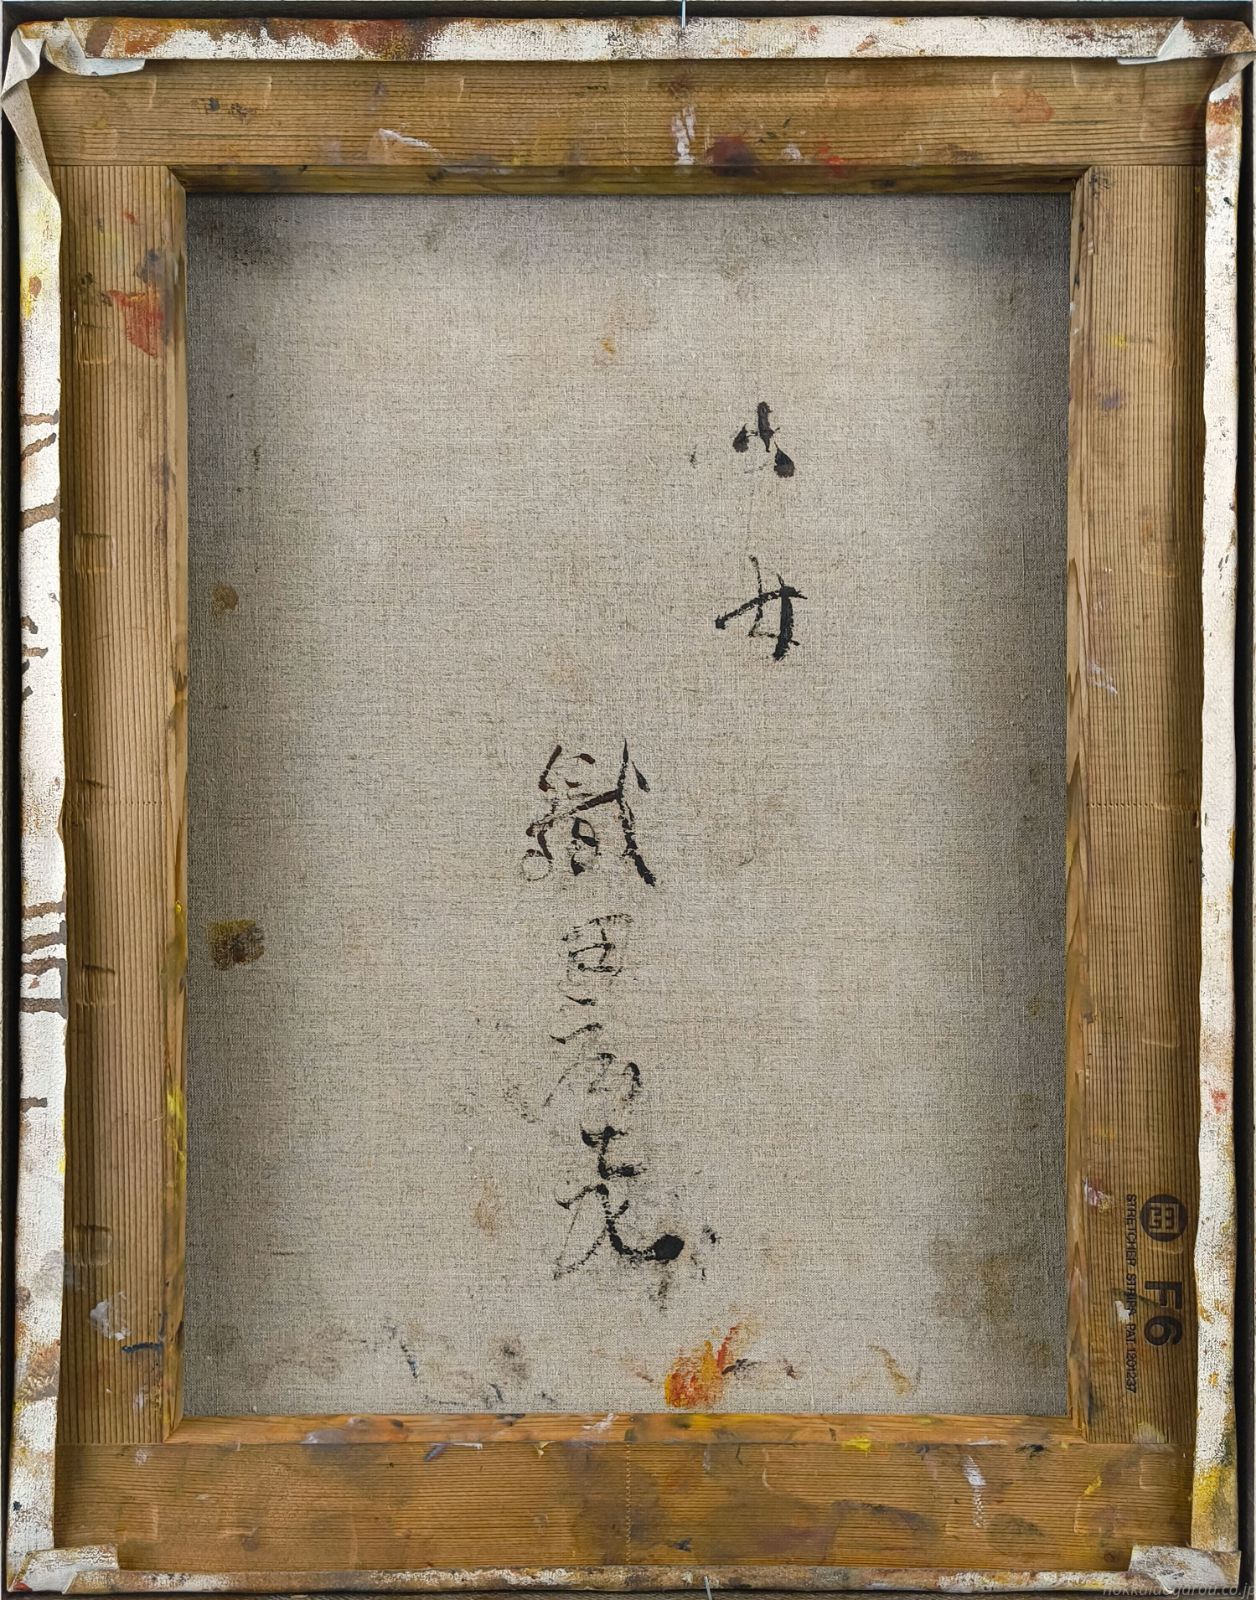 少女
織田廣喜
F6
STRETCHER STRIP PAT.1201237
hokkaidogarou.co.jp